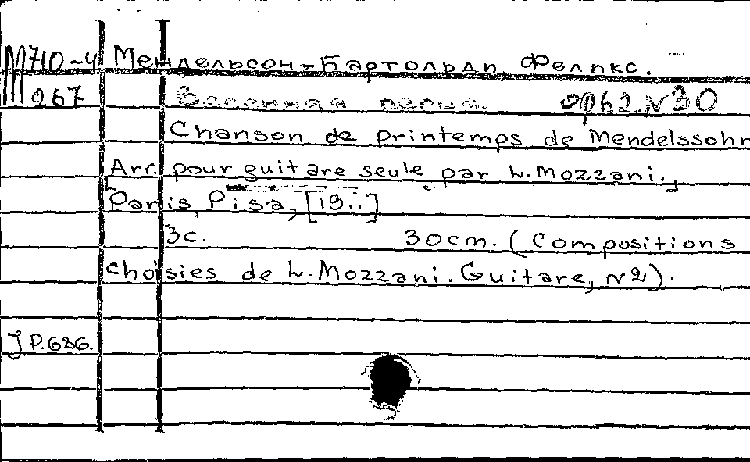 М710-4 Мендельсон-Бартольди, Феликс.
М 267 Весенняя песня. op62.№30
Chanson de printemps de Mendelssohn
[Arr. pour guitare seule par L.Mozzani.]
Paris, Pisa, [19..]
3с. 30cm. (Compositions
choisies de L.Mozzani. Guitare, №2).
JP.686.